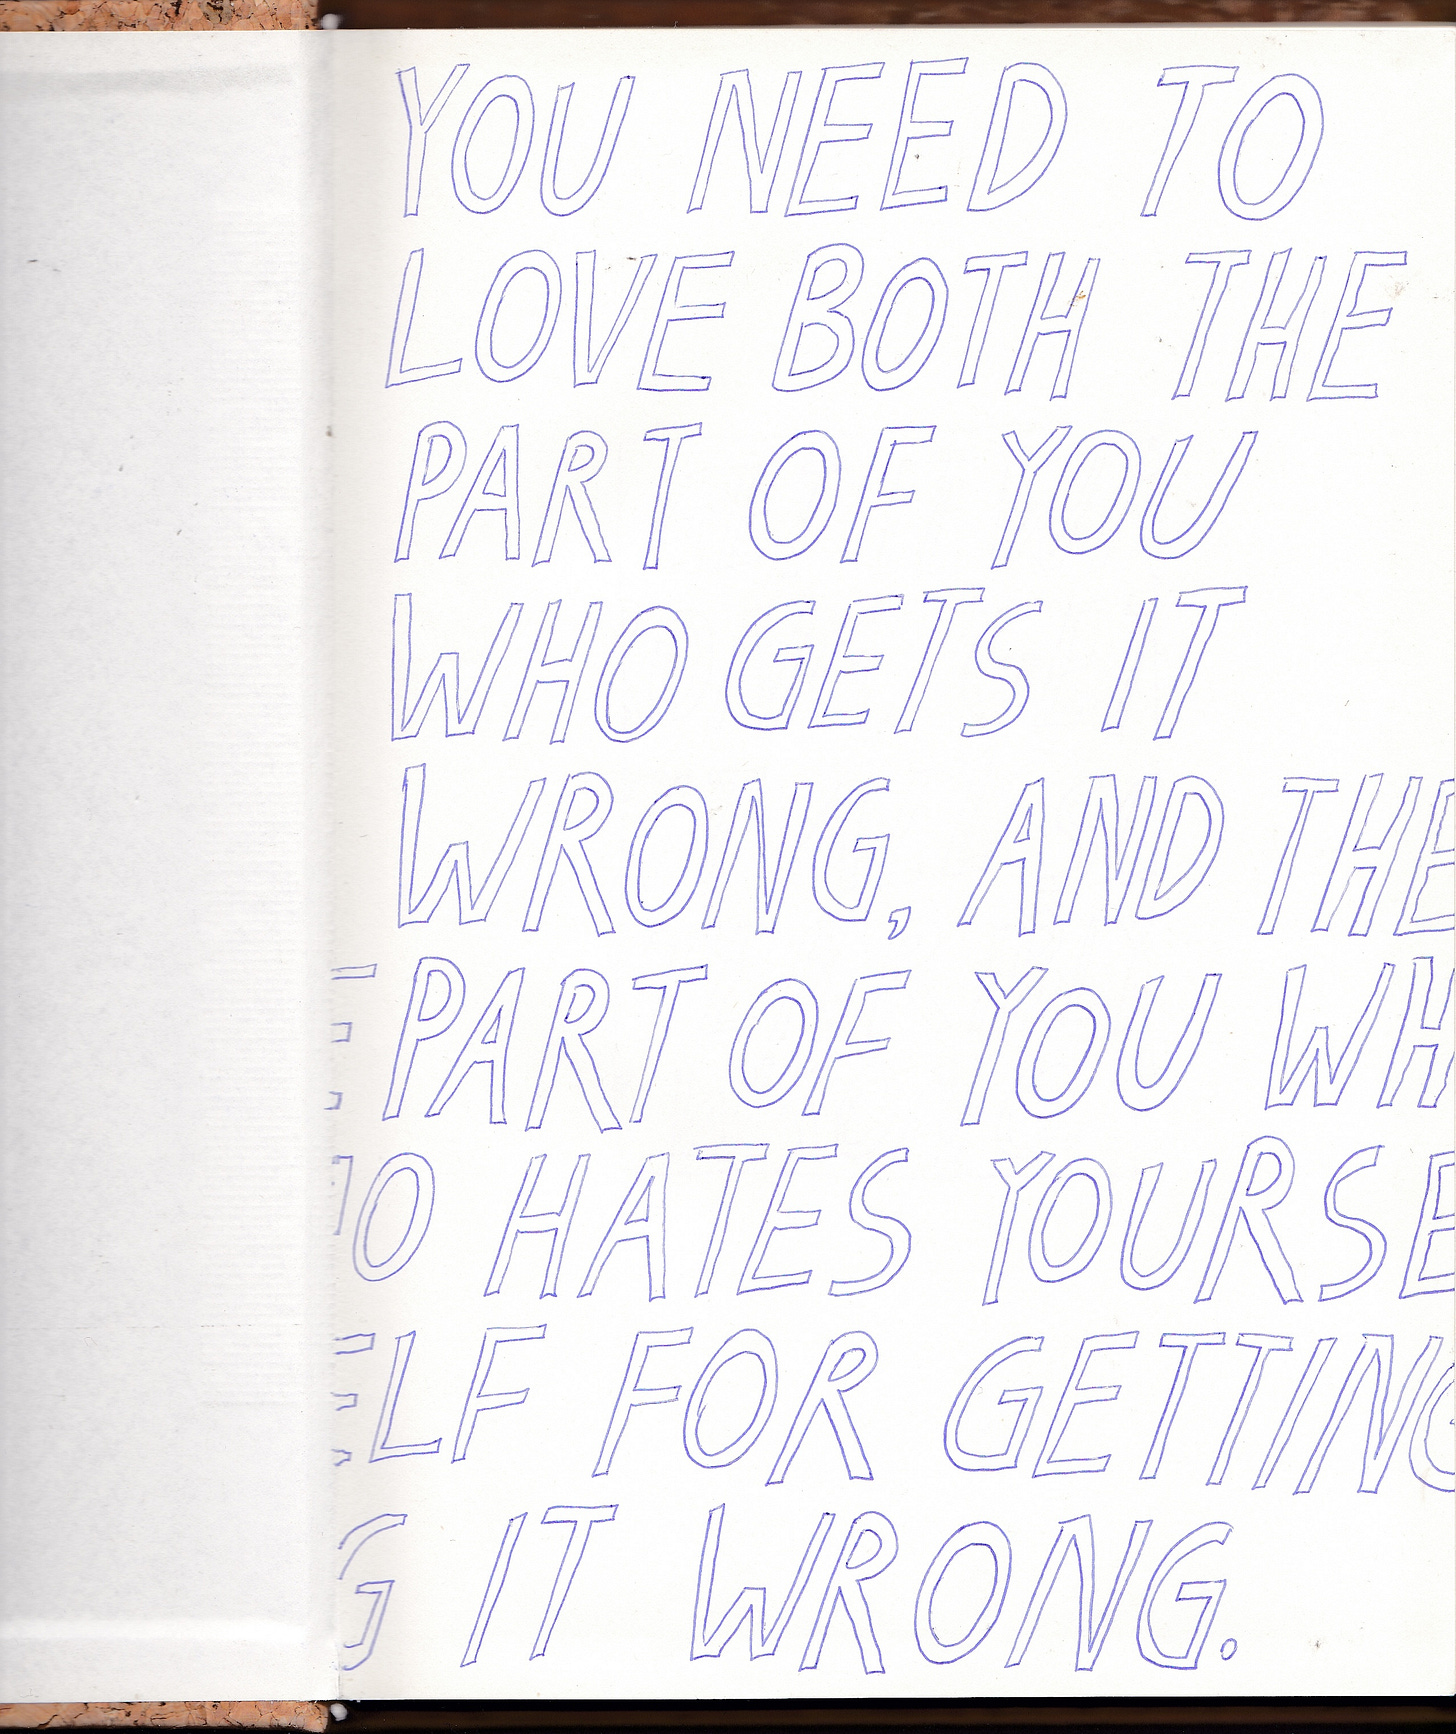 YOU NEED TO
LOVE BOTH THE
PART OF YOU
WHO GETS IT
WRONG, AND THE
PART OF YOU WH
O HATES YOURSE
LF FOR GETTING
IT WRONG.